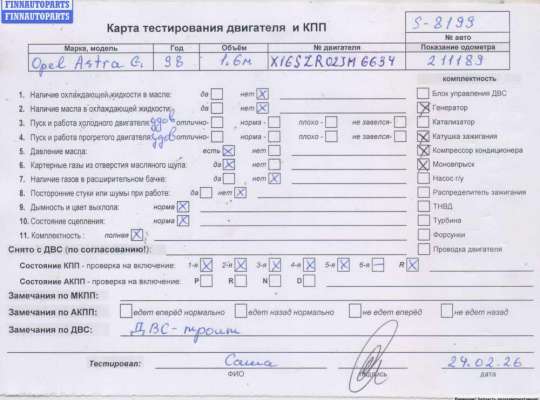 FINNAUTOPARTS
FINNAUTOPARTS
Карта тестирования двигателя и КПП
S-8199
№ авто
Марка, модель Год Объём № двигателя Показание одометра
Opel Astra G, 98 1.6м X16SZR02JM6634 211189
комплектность
1. Наличие охлаждающей жидкости в масле: да нет X Блок управления ДВС
2. Наличие масла в охлаждающей жидкости: да нет X X Генератор
3. Пуск и работа холодного двигателя: удов отлично- норма - плохо - не завелся- Катализатор
4. Пуск и работа прогретого двигателя: удов отлично- норма - плохо - не завелся- X Катушка зажигания
5. Давление масла: есть X нет X Компрессор кондиционера
6. Картерные газы из отверстия масляного щупа: да X нет X Моновпрыск
7. Наличие газов в расширительном бачке: да нет X Насос г/у
8. Посторонние стуки или шумы при работе: да нет X Распределитель зажигания
9. Дымность и цвет выхлопа: норма X ТНВД
10. Состояние сцепления: норма X Турбина
11. Комплектность : полная X Форсунки
Снято с ДВС (по согласованию!): Проводка двигателя
Состояние КПП - проверка на включение: 1-я X 2-я X 3-я X 4-я X 5-я X 6-я – R X
Состояние АКПП - проверка на включение: P R N D
Замечания по МКПП:
Замечания по АКПП: едет вперёд нормально едет назад нормально не едет вперёд не едет назад
Замечания по ДВС: ДВС-троит
Тестировал: Саша 24.02.26
ФИО подпись дата